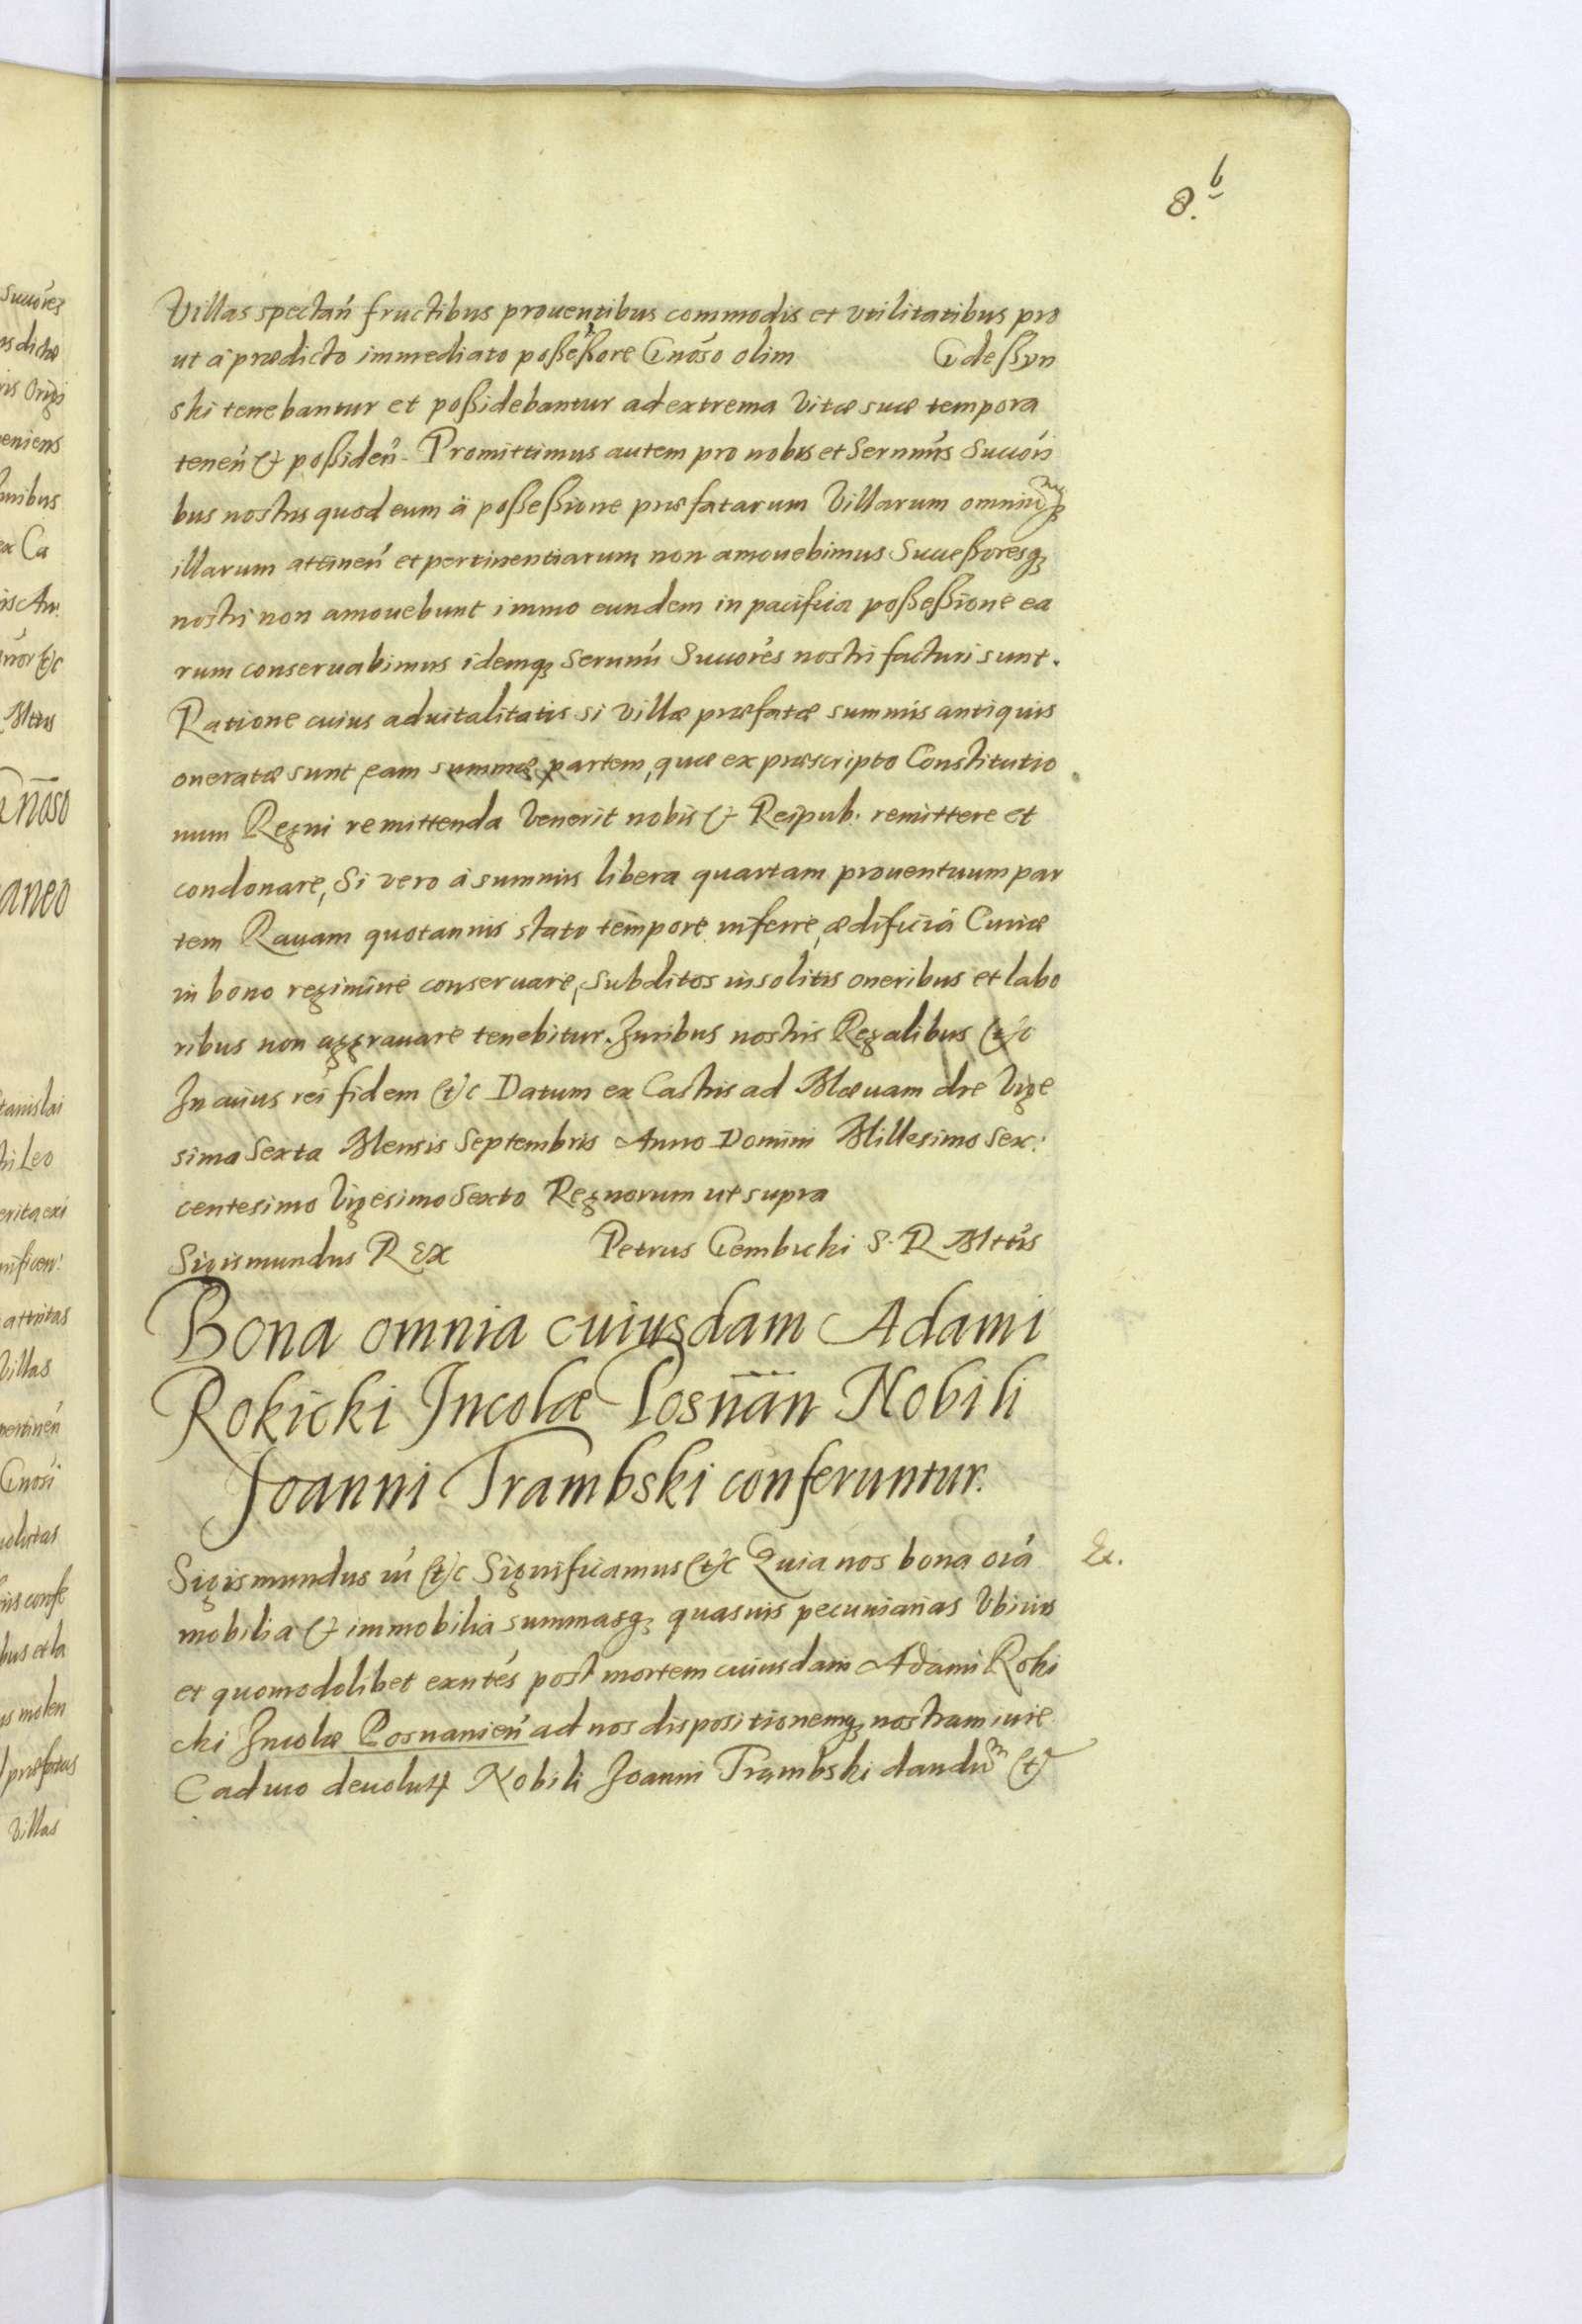 8.b
Villas spectań fructibus prouentibus commodis et vtilitatibus pro
ut à prædicto immediato poßeßore Gnóso olim Gdeßyn
ski tenebantur et poßidebantur ad extrema Vitæ suæ tempora
teneń & poßideń. Promittimus autem pro nobis et Sernmís Succóri
bus nostris quod eum à poßeßione præfatarum Villarum omniumq
illarum attineń et pertinentiarum non amouebimus Succeßoresq
nostri non amouebunt immo eundem in pacifica poßeßione ea
rum conseruabimus idemq Sernmí Succóres nostri facturi sunt.
Ratione cuius aduitalitatis si Villæ præfatæ summis antiquis
oneratæ sunt, eam summæ partem, quæ ex præscripto Constitutio
num Regni remittenda Venerit nobis & Reipub. remittere et
condonare, Si vero à summis libera quartam prouentuum par
tem Rauam quotannis stato tempore inferre, ædificia Curiæ
in bono regimine conseruare, Subditos insolitis oneribus et labo
ribus non aggrauare tenebitur. Juribus nostris Regalibus &c
In cuius rei fidem &c Datum ex Castris ad Mæuam die Vige
sima Sexta Mensis Septembris Anno Domini Millesimo Sex:
centesimo Vigesimo Sexto Regnorum ut supra
Sigismundus REX Petrus Gembicki S. R. Mttis
Bona omnia cuiusdam Adami
Rokicki Incolæ Posnań Nobili
Joanni Trambski conferuntur.
Sigismundus ut &c Significamus &c Quia nos bona oiá
Ex.
mobilia & immobilia summasq quasuis pecuniarias Vbiuis
et quomodolibet exntés post mortem cuiusdam Adami Roki
cki Incolæ Posnanień ad nos dispositionemq nostram iure
Caduco deuolut Nobili Joanni Trąmbski dandum &